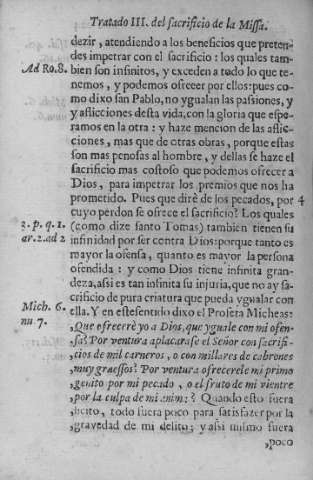 Tratado III. del sacrificio de la Missa.
dezir, atendiendo a los beneficios que preten-
des impetrar con el sacrificio: los quales tam-
Ad Ro.8.
bien son infinitos, y exceden a todo lo que te-
nemos, y podemos ofrecer por ellos: pues co-
mo dixo san Pablo, no ygualan las passiones, y
y aflicciones desta vida, con la gloria que espe-
ramos en la otra: y haze mencion de las aflic-
ciones, mas que de otras obras, porque estas
son mas penosas al hombre, y dellas se haze el
sacrificio mas costoso que podemos ofrecer a
Dios, para impetrar los premios que nos ha
prometido. Pues que dirè de los pecados, por
4
cuyo perdon se ofrece el sacrificio? Los quales
3. p. q. 1.
(como dize santo Tomas) tambien tienen su
ar.2.ad 2
infinidad por ser contra Dios: porque tanto es
mayor la ofensa, quanto es mayor la persona
ofendida: y como Dios tiene infinita gran-
deza, assi es tan infinita su injuria, que no ay sa-
crificio de pura criatura que pueda ygualar con
Mich. 6.
ella. Y en este sentido dixo el Profeta Micheas:
nu 7.
Que ofrecerè yo a Dios, que yguale con mi ofen-
sa? Por ventura aplacarase el Señor con sacrifi-
cios de mil carneros, o con millares de cabrones
muy gruessos? Por ventura ofrecerele mi primo
genito por mi pecado, o el fruto de mi vientre
por la culpa de mi anima? Quando esto fuera
licito, todo fuera poco para satisfazer por la
gravedad de mi delito; y assi mismo fuera
poco